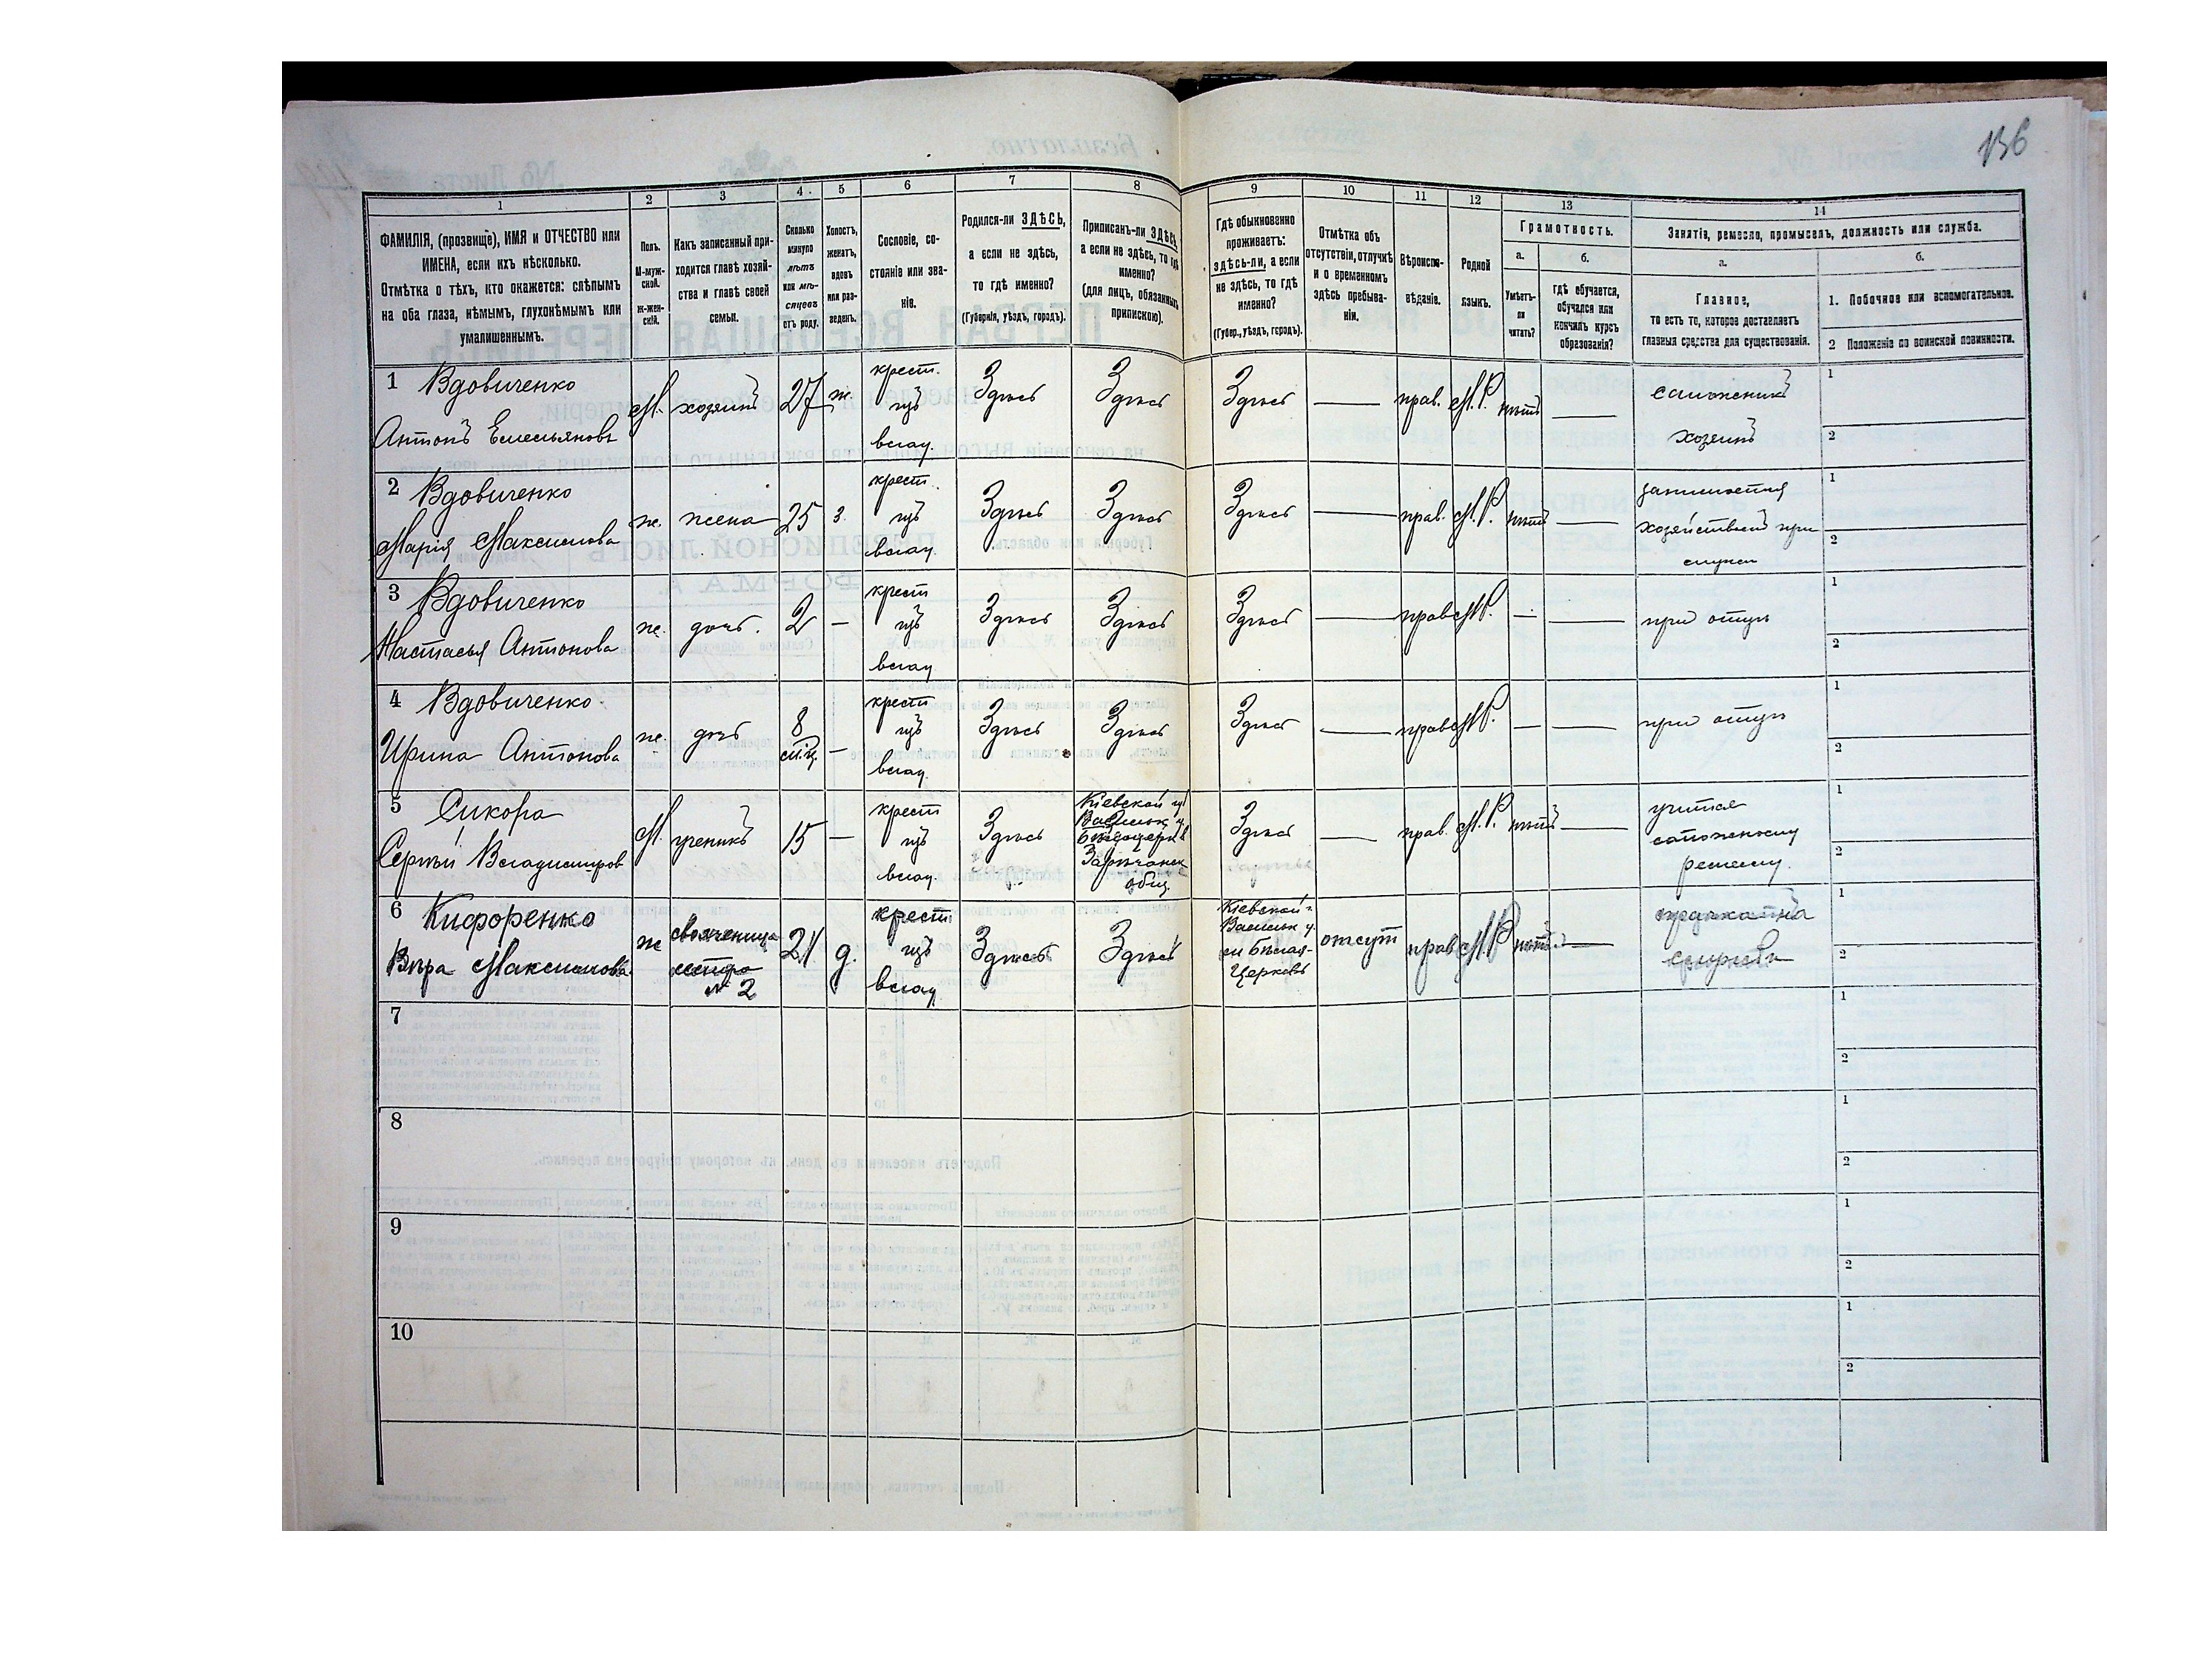 136
1 2 3 4 5 6 7 8 9 10 11 12 13 14
ФАМИЛІЯ, (прозвище), ИМЯ и ОТЧЕСТВО или
ИМЕНА, если ихъ нѣсколько.
Отмѣтка о тѣхъ, кто окажется: слѣпымъ
на оба глаза, нѣмымъ, глухонѣмымъ или
умалишеннымъ.
Полъ.
М-муж-
ской.
Ж-жен-
скій.
Какъ записанный при-
ходится главѣ хозяй-
ства и главѣ своей
семьи.
Сколько
минуло
лѣтъ
или мѣ-
сяцевъ
отъ роду.
Холостъ,
женатъ,
вдовъ
или раз-
веденъ.
Сословіе, со-
стояніе или зва-
ніе.
Родился-ли ЗДѢСЬ,
а если не здѣсь,
то гдѣ именно?
(Губернія, уѣздъ, городъ).
Приписанъ-ли ЗДѢСЬ,
а если не здѣсь, то гдѣ
именно?
(для лицъ, обязанныхъ
припискою).
Гдѣ обыкновенно
проживаетъ:
здѣсь-ли, а если
не здѣсь, то гдѣ
именно?
(Губер., уѣздъ, городъ).
Отмѣтка объ
отсутствіи, отлучкѣ
и о временномъ
здѣсь пребыва-
ніи.
Вѣроиспо-
вѣданіе.
Родной
языкъ.
Грамотность.
а.
Умѣетъ-
ли
читать?
б.
гдѣ обучается,
обучался или
кончилъ курсъ
образованія?
Занятіе, ремесло, промыселъ, должность или служба.
а.
Главное,
то есть то, которое доставляетъ
главныя средства для существованія.
б.
1. Побочное или вспомогательное.
2 Положеніе по воинской повинности.
1 Вдовиченко
Антонъ Емельяновъ
М. хозяинъ 27 ж.
крест.
изъ
влад.
Здѣсь Здѣсь Здѣсь — прав. М.Р. нѣтъ —
сапожникъ
хозяинъ
1
2
2 Вдовиченко
Марія Максимова
ж. жена 25 з.
крест.
изъ
влад.
Здѣсь Здѣсь Здѣсь — прав. М.Р. нѣтъ —
занимается
хозяйствомъ при
мужѣ
1
2
3 Вдовиченко
Настасья Антонова
ж. дочь. 2 —
крест
изъ
влад
Здѣсь Здѣсь Здѣсь — прав М.Р. — —
при отцѣ
1
2
4 Вдовиченко
Ирина Антонова
ж. дочь 8
м-ц. —
крест
изъ
влад.
Здѣсь Здѣсь Здѣсь — прав М.Р. — —
при отцѣ
1
2
5 Сикора
Сергѣй Владимиров
М. ученикъ 15 —
крест
изъ
влад.
Здѣсь
Кіевской губ
Васильк у.
Бѣлоцерков
Зарѣчанск
общ.
Здѣсь — прав. М.Р. нѣтъ —
учится
сапожному
ремеслу.
1
2
6 Кифоренко
Вѣра Максимова
ж
свояченица
сестра
№ 2
21 д.
крест
изъ
влад
Здѣсь Здѣсь
Кіевской г.
Васильк у.
м Бѣлая-
Церковь
отсут прав М.Р нѣтъ. —
1
2
7
1
2
8
1
2
9
1
2
10
1
2